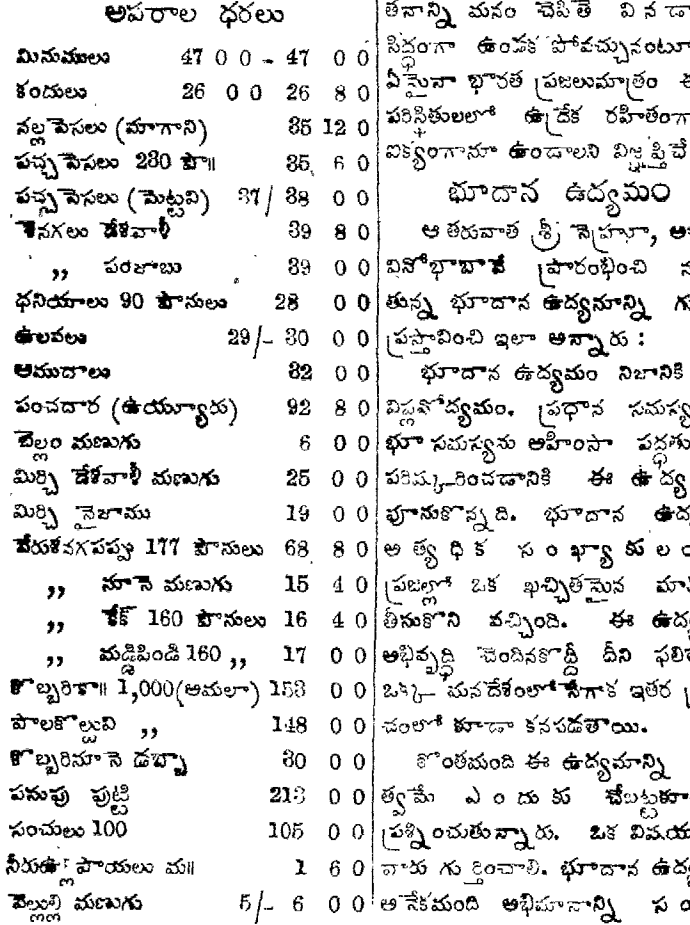 అపరాల ధరలు
మినుములు 47 0 0 - 47 0 0
కందులు 26 0 0 26 8 0
నల్ల పెసలు (మాగాని) 35 12 0
పచ్చ పెసలు 230 పౌ॥ 35 6 0
పచ్చ పెసలు (మెట్టవి) 37/ 38 0 0
శెనగలు దేశవాళీ 39 8 0
,, పంజాబు 39 0 0
ధనియాలు 90 పౌనులు 28 0 0
ఉలవలు 29/- 30 0 0
ఆముదాలు 32 0 0
పంచదార (ఉయ్యూరు) 92 8 0
బెల్లం మణుగు 6 0 0
మిర్చి దేశవాళీ మణుగు 25 0 0
మిర్చి నైజాము 19 0 0
వేరుశనగపప్పు 177 పౌనులు 68 8 0
,, నూనె మణుగు 15 4 0
,, కేక్ 160 పౌనులు 16 4 0
,, మడ్డిపిండి 160 ,, 17 0 0
కొబ్బరికా॥ 1,000(అమలా) 153 0 0
పాలకొల్లువి ,, 148 0 0
కొబ్బరినూనె డబ్బా 30 0 0
పసుపు పుట్టి 213 0 0
సంచులు 100 105 0 0
నీరుఉల్లిపాయలు మ॥ 1 6 0
వెల్లుల్లి మణుగు 5/- 6 0 0
తనాన్ని మనం చెపితే వినడా
సిద్ధంగా ఉండక పోవచ్చునంటూ
ఏమైనా భారత ప్రజలుమాత్రం
పరిస్థితులలో ఉద్రేక రహితంగా
ఐక్యంగానూ ఉండాలని విజ్ఞప్తిచే
భూదాన ఉద్యమం
ఆ తరువాత శ్రీ నెహ్రూ, ఆ
వినోభాబావే ప్రారంభించి న
తున్న భూదాన ఉద్యమాన్ని గు
ప్రస్తావించి ఇలా అన్నారు :
భూదాన ఉద్యమం నిజానికి
విప్లవోద్యమం. ప్రధాన సమస్య
భూ సమస్యను అహింసా పద్ధతు
పరిష్కరించడానికి ఈ ఉద్య
పూనుకొన్నది. భూదాన ఉద్య
అత్యధిక సంఖ్యాకులలో
ప్రజల్లో ఒక ఖచ్చితమైన మా
తీసుకొని వచ్చింది. ఈ ఉద్య
అభివృద్ధి చెందినకొద్దీ దీని ఫలి
ఒక్క మనదేశంలోనేగాక ఇతర ప్ర
చంలో కూడా కనపడతాయి.
కొంతమంది ఈ ఉద్యమాన్ని
త్వమే ఎందుకు చేబట్టకూ
ప్రశ్నించుతున్నారు. ఒక విషయ
వారు గుర్తించాలి. భూదాన ఉద్య
అనేకమంది అభిమానాన్ని సం